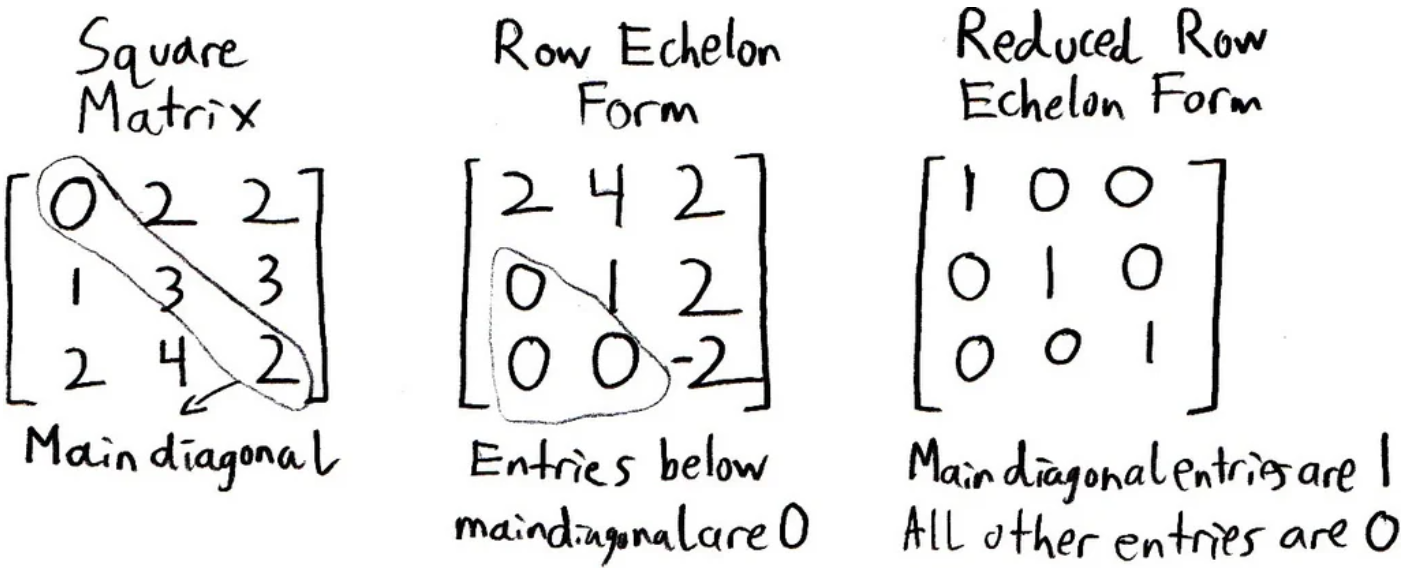 Square
Matrix
0 2 2
1 3 3
2 4 2
Main diagonal
Row Echelon
Form
2 4 2
0 1 2
0 0 -2
Entries below
main diagonal are 0
Reduced Row
Echelon Form
1 0 0
0 1 0
0 0 1
Main diagonal entries are 1
All other entries are 0